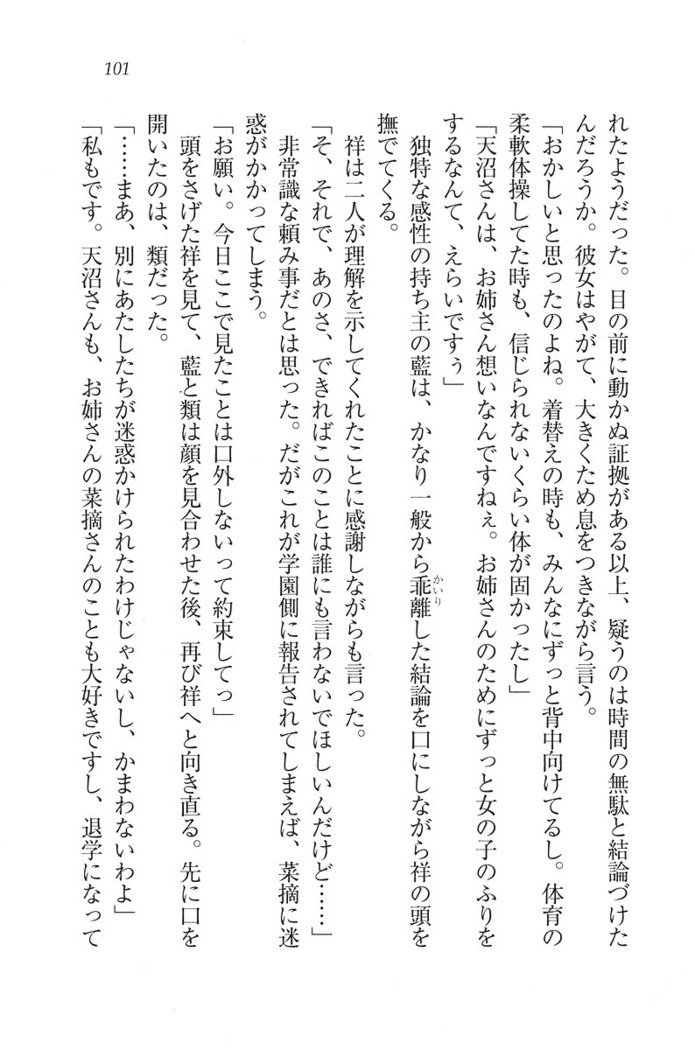 101
れたようだった。目の前に動かぬ証拠がある以上、疑うのは時間の無駄と結論づけた
んだろうか。彼女はやがて、大きくため息をつきながら言う。
「おかしいと思ったのよね。着替えの時も、みんなにずっと背中向けてるし。体育の
柔軟体操してた時も、信じられないくらい体が固かったし」
「天沼さんは、お姉さん想いなんですねぇ。お姉さんのためにずっと女の子のふりを
するなんて、えらいですぅ」
独特な感性の持ち主の藍は、かなり一般から乖離かいりした結論を口にしながら祥の頭を
撫でてくる。
祥は二人が理解を示してくれたことに感謝しながらも言った。
「そ、それで、あのさ、できればこのことは誰にも言わないでほしいんだけど……」
非常識な頼み事だとは思った。だがこれが学園側に報告されてしまえば、菜摘に迷
惑がかかってしまう。
「お願い。今日ここで見たことは口外しないって約束してっ」
頭をさげた祥を見て、藍と類は顔を見合わせた後、再び祥へと向き直る。先に口を
開いたのは、類だった。
「……まあ、別にあたしたちが迷惑かけられたわけじゃないし、かまわないわよ」
「私もです。天沼さんも、お姉さんの菜摘さんのことも大好きですし、退学になって